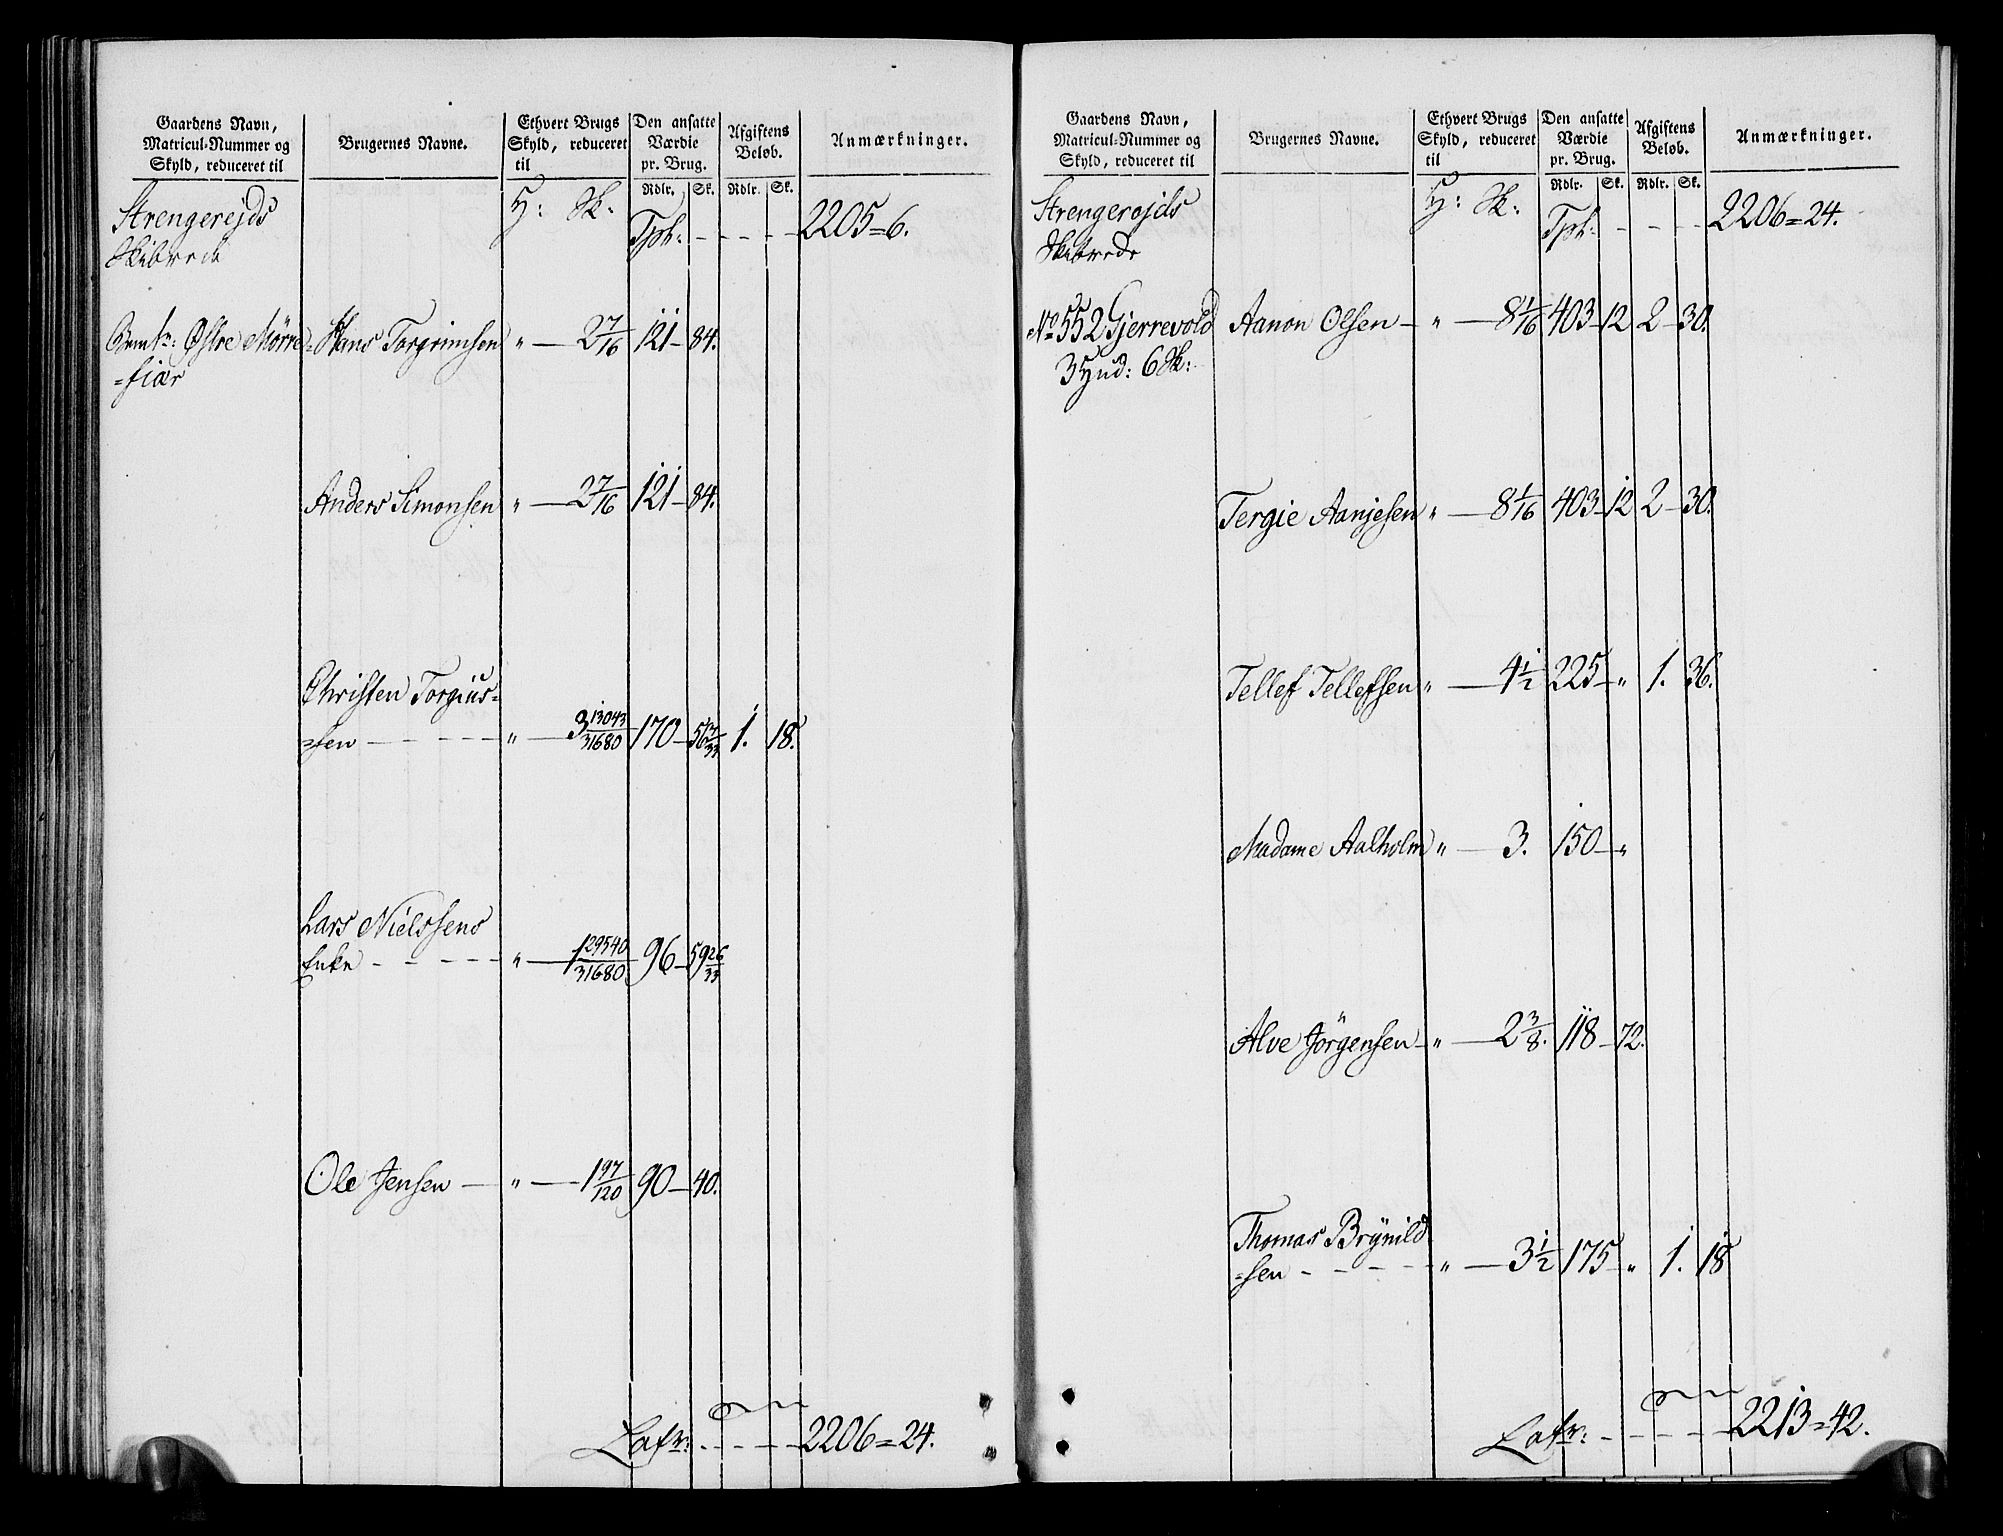 Gaardens Navn,
Matricul-Nummer og
Skyld, reduceret til
Brugernes Navne.
Ethvert Brugs
Skyld, reduceret
til
Den ansatte
Værdie
pr. Brug.
Afgiftens
Beløb.
Anmærkninger.
Rdlr. Sk. Rdlr. Sk.
Strengerejds
Skibrede
H: Sk:
Tpt: - - - - 2205=6.
Østre Mørre= Hans Torgrimsen " — 2 7/16 121 — 84.
=fiær
Anders Simonsen " — 2 7/16 121 — 84.
Christen Torgius=
=sen — — — — " — 3 13043/31680 170 — 56 7/33 1. 18.
Lars Nielssens
Enke — — — — " — 1 29540/31680 96 — 59 26/33
Ole Jensen — " — 1 97/120 90 — 40.
Lafr: - - - - 2206=24.
Gaardens Navn,
Matricul-Nummer og
Skyld, reduceret til
Brugernes Navne.
Ethvert Brugs
Skyld, reduceret
til
Den ansatte
Værdie
pr. Brug.
Afgiftens
Beløb.
Anmærkninger.
Rdlr. Sk. Rdlr. Sk.
Strengerøjds
Skibrede
H: Sk:
Tpt: - - - - 2206=24.
No 552 Gjerrevold Aanon Olsen — " — 8 1/16 403 — 12 2 — 30.
3 Hud: 6 Sk:
Tergie Aanjesen " — 8 1/16 403 — 12 2 — 30.
Tellef Tellefsen " — 4 1/2 225 — " 1. 36.
Madame Aalholm " — 3. 150 — "
Alve Jörgensen — " — 2 3/8. 118 — 72.
Thomas Brynild
=sen — — — — " — 3 1/2 175 — " 1. 18
Lafr: - - - - 2213=42.